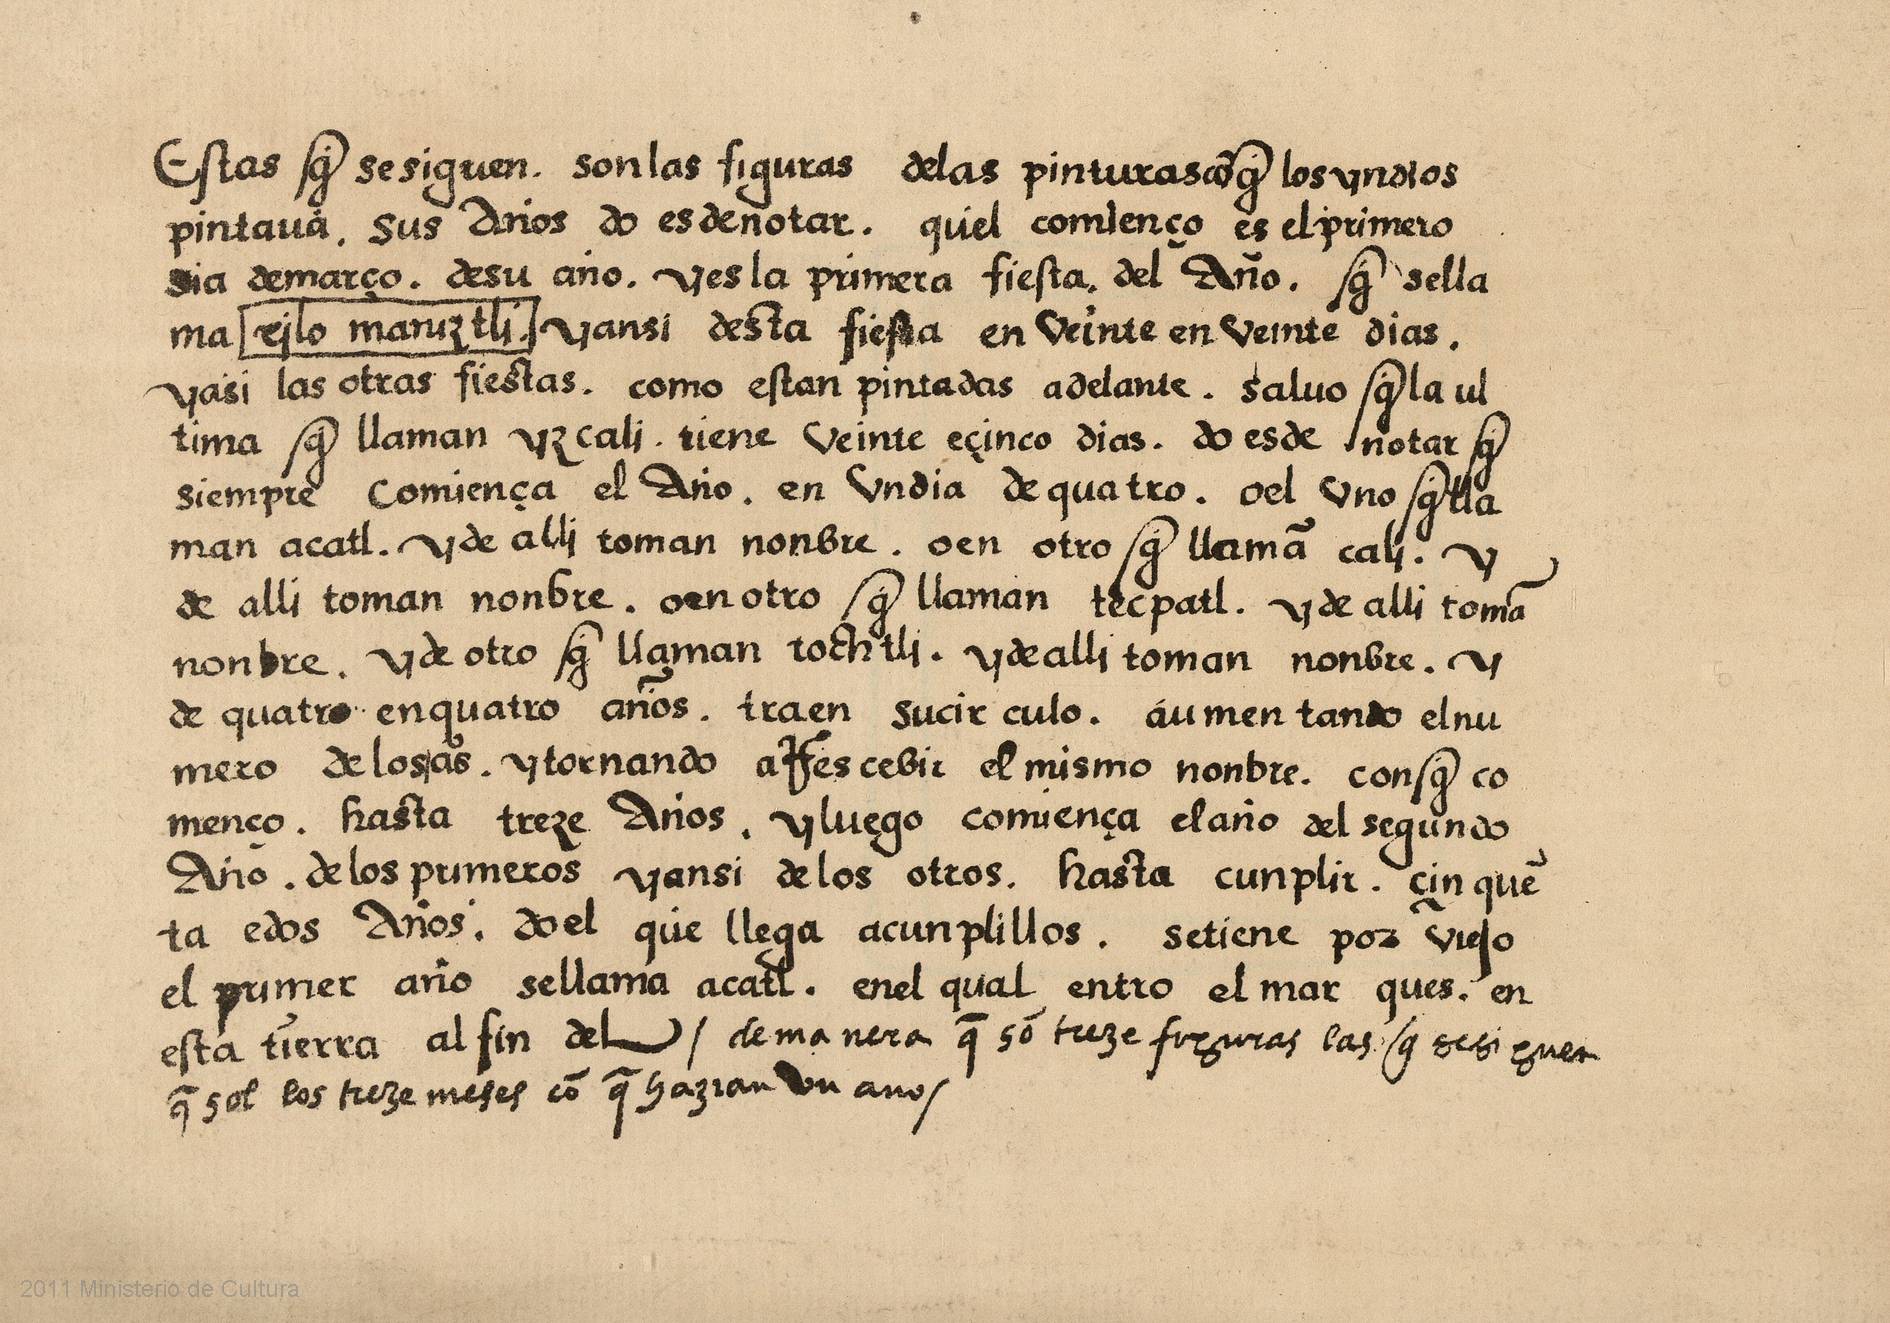 Estas q̃ se siguen. son las figuras delas pinturas cõ q̃ los yndios
pintauã. sus Años do es de notar. quiel comienço es el primero
dia de março. de su año. y es la primera fiesta. del Año. q̃ se lla
ma yansi desta fiesta en veinte en veinte dias.
yasi las otras fiestas. como estan pintadas adelante. saluo q̃ la ul
tima q̃ llaman yzcali. tiene veinte e çinco dias. do es de notar q̃
siempre comiença el Año. en vn dia de quatro. o el vno q̃ lla
man acatl. y de alli toman nonbre. o en otro q̃ llamã cali. y
de alli toman nonbre. o en otro q̃ llaman tecpatl. y de alli tomã
nonbre. y de otro q̃ llaman tochtli. y de alli toman nonbre. y
de quatro en quatro años. traen su circulo. aumentando el nu
mero de los as. y tornando a Rescebir el mismo nonbre. con q̃ co
menço. hasta treze Años. y luego comiença el año del segundo
Año. de los primeros yansi de los otros. hasta cunplir. çinquẽ
ta e dos Años. do el que llega a cunplillos. se tiene por viejo
el primer año se llama acatl. en el qual entro el marques. en
esta tierra al fin del / de manera q̃ sõ treze figuras las q̃ se siguen
q̃ sol los treze meses cõ q̃ hazian vn ano/
2011 Ministerio de Cultura